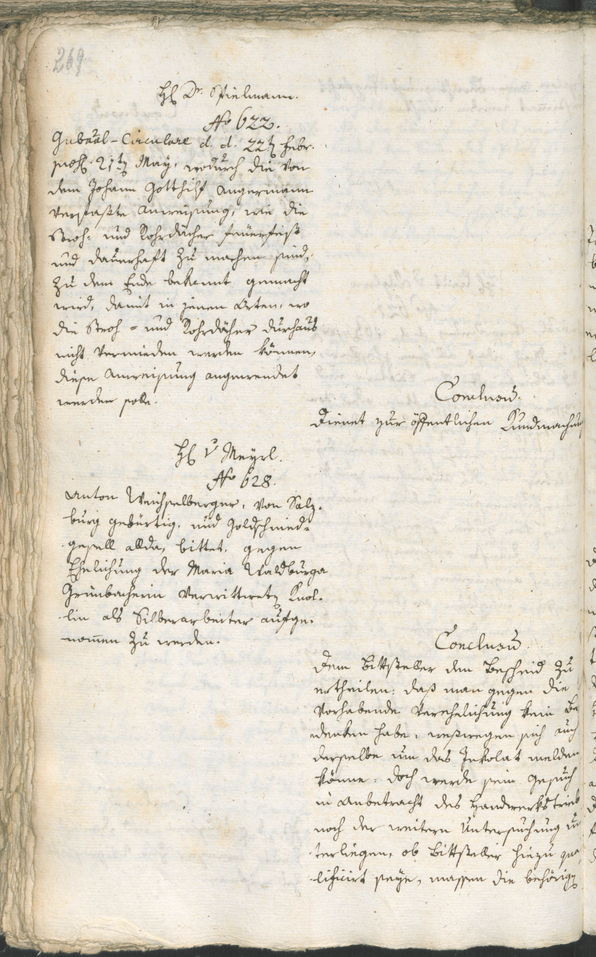 269.
H. Dr. Spielmann.
No 622.
Gubâal-Circulare d. d. 22t Febr.
prs. 21t May, wodurch die von
dem Johann Gotthilf Angermann
verfaßte Anweisung, wie die
Stroh- und Rohrdächer feuerfest
und dauerhaft zu machen sind,
zu dem Ende bekannt gemacht
wird, damit in jenen Orten, wo
die Stroh- und Rohrdächer durchaus
nicht vermieden werden können,
diese Anweisung angewendet
werden solle.
Conclusu.
Dienet zur öffentlichen Kundmachung
H. v Mayrl.
No 628.
Anton Weichselberger, von Salz-
burg gebürtig, und Goldschmied-
gesell allda, bittet, gegen
Ehelichung der Maria Waldburga
Grünbacherin verwittwete Knol-
lin als Silberarbeiter aufge-
nommen zu werden.
Conclusu.
Dem Bittsteller den Bescheid zu
ertheilen: daß man gegen die
vorhabende Verehelichung kein Be
denken habe, weßwegen sich auch
derselbe um das Inkolat melden
könne: doch werde sein Gesuch
in Anbetracht des Handwerkstrieb
noch der weitern Untersuchung un
terliegen, ob Bittsteller hiezu qua
lificirt seye, massen die behörige